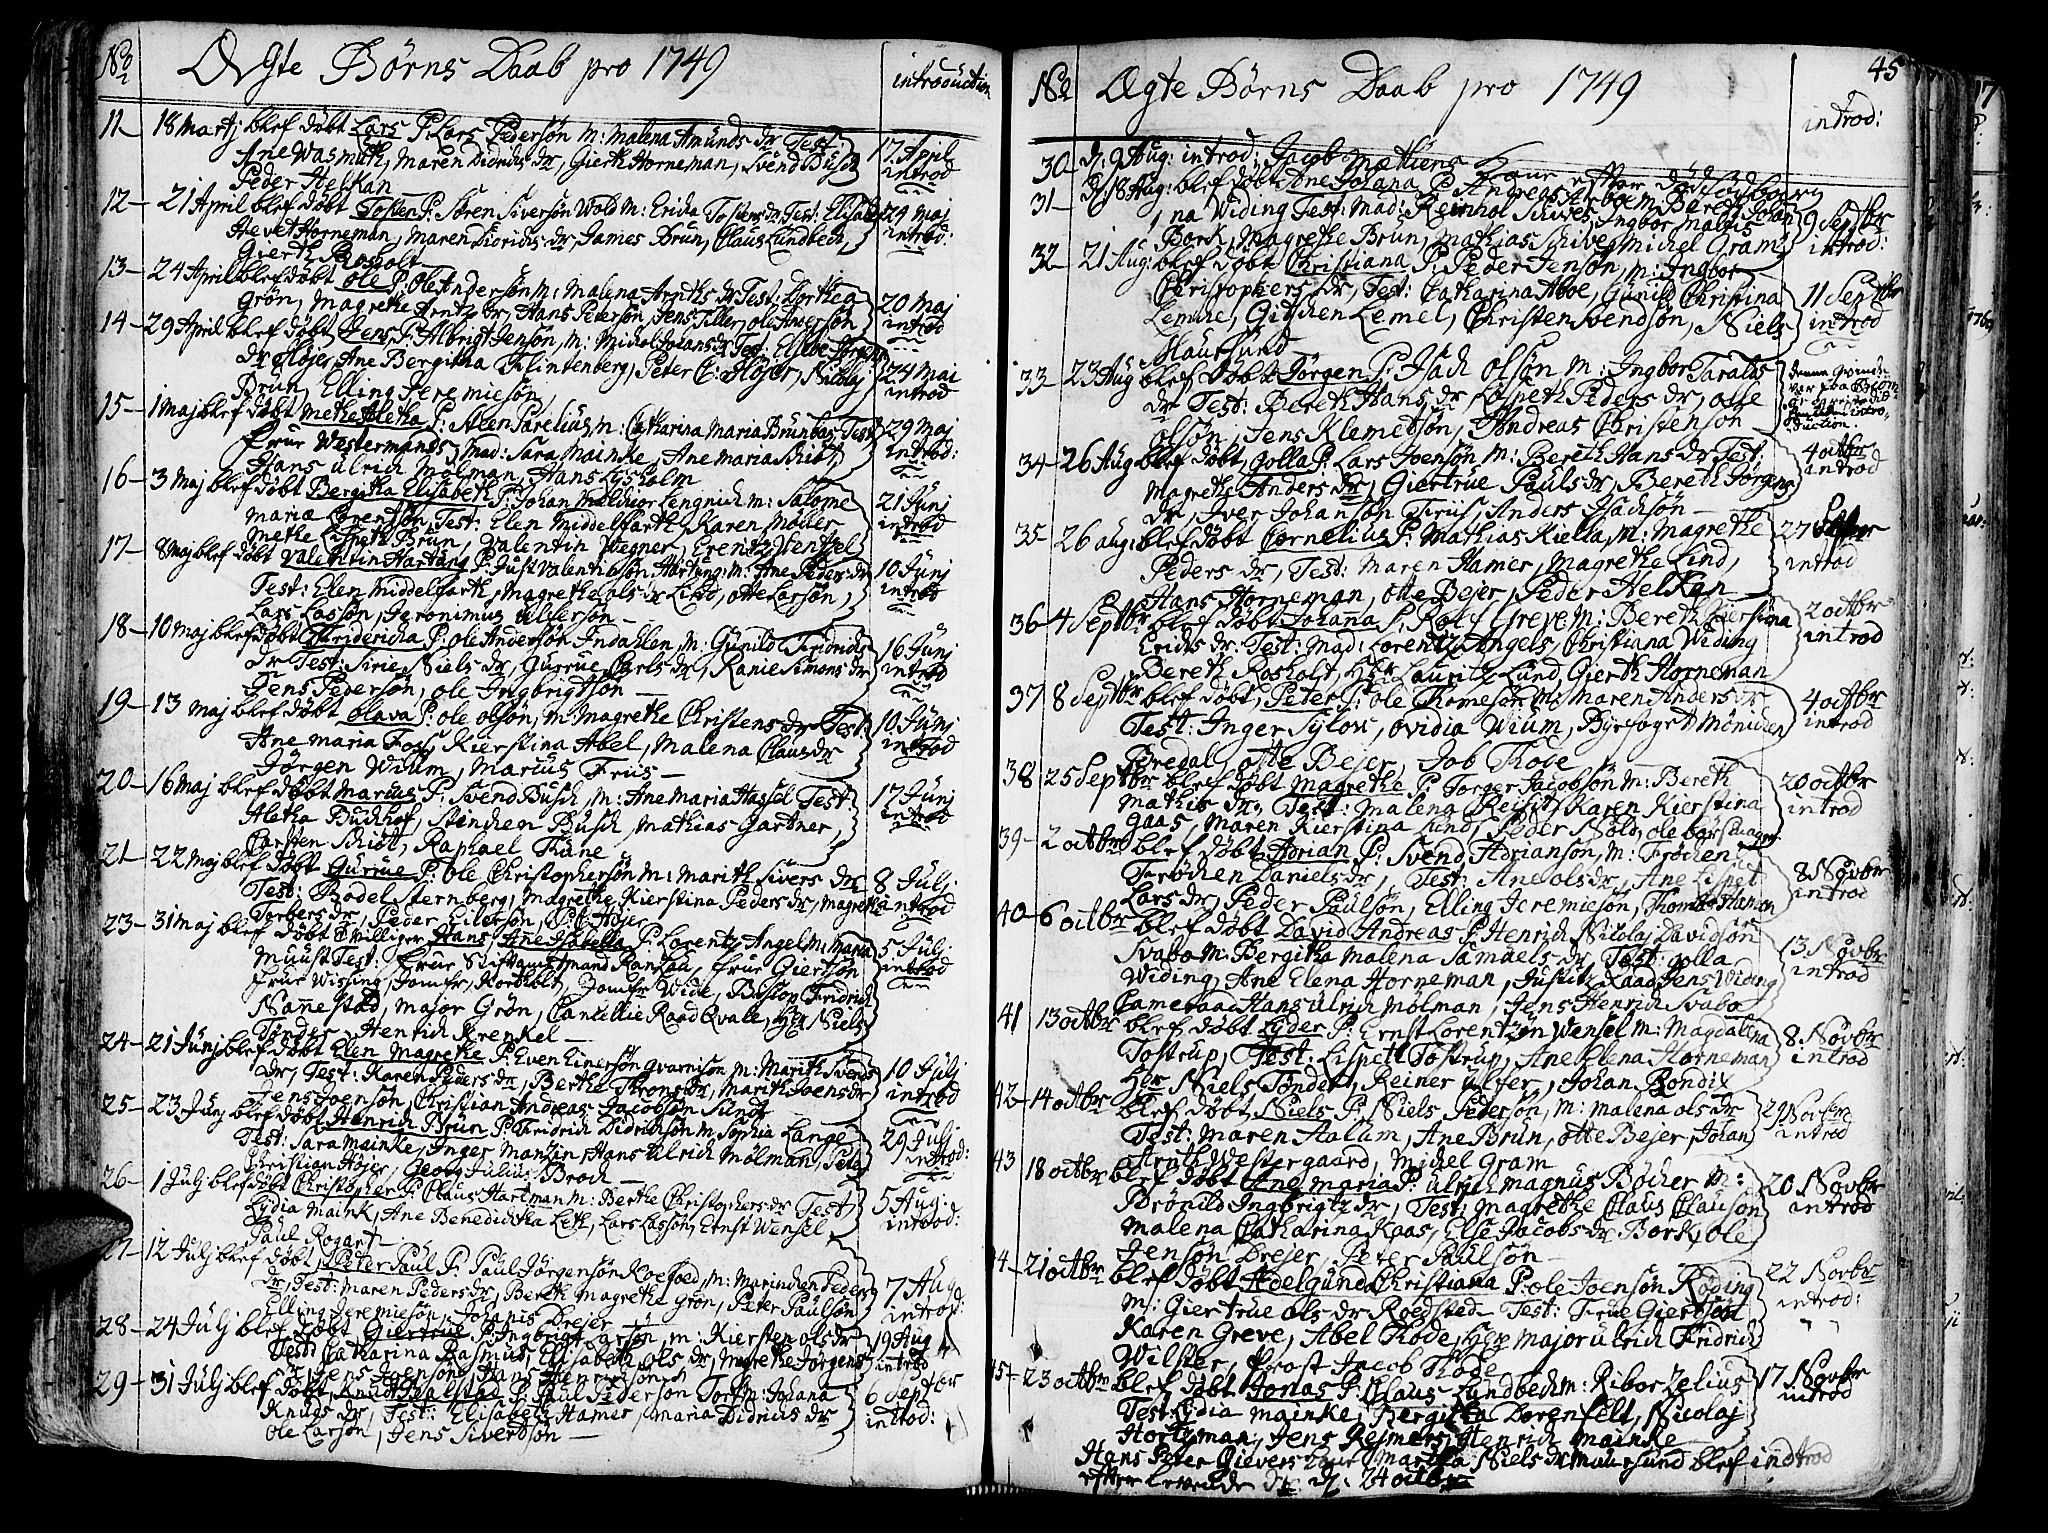 No Ægte Børns Daab pro 1749 introduction
11 - 18 Martj blef døbt Lars P: Lars Pedersøn M: Malena Amunds dr Test:
Ane Wasmuth, Maren Didrichs dr, Gierth Horneman, Svend Busch
Peder Helkan
17 April introd
12 - 21 April blef døbt Tosten P: Søren Siversøn Wold M: Ericha Tostens dr Test: Elisabet
Horneman, Maren Didrichs dr, James Brun, Claus Lundbech,
Gierth Rosholt
24 Maj introd:
13 - 24 April blef døbt Ole P: Ole Andersøn M: Malena Arnths dr Test: Dorthea
Grøn, Magrethe Arntz dr, Hans Petersøn, Jens Tiller, Ole Andersøn
20 Maj introd
14 - 29 April blef døbt Jens P: Albrigt Jensøn, M: Michol Johans dr Test: Elsebe Jørgens
dr Højer, Ane Bergitha Flintenberg, Peter C: Højer, Nicolaj
Brun, Elling Jeremiesøn
24 Mai introd
15 - 1 Maj blef døbt Methe Aletha P: Aten Parelius, M: Catharina Maria Brun Test:
Frue Westermands, Mad: Sara Mainke, Ane Maria Schiøt,
Hans Ulrich Mølman, Hans Lysholm
29 Maj introd:
16 - 3 Maj blef døbt Bergitha Elisabeth P: Johan Melchior Lengnich M: Salome
Maria Lorensøn, Test: Elen Middelfarth, Karen Møller
Methe Lispeth Brun, Valentin Wegner, Erentz Wentzel
21 Junj introd
17 - 8 Maj blef døbt Valentin Hartung P: Just Valentinsøn Hartung, M: Ane Peders dr
Test: Elen Middelfarth, Magrethe Ols dr Lind, Otte Larsøn,
Lars Lassøn, Jeronimus Ulfersøn
10 Junj introd
18 - 10 Maj blef døbt Fridericha P: Ole Andersøn Indahlen, M: Gunild Fridrichs
dr Test: Sirie Niels dr, Gurrue Carls dr, Ranie Simons dr
Jens Pedersøn, Ole Ingbrigtsøn
16 Junj introd
19 - 13 Maj blef døbt Olava P: Ole Olsøn, M: Magrethe Christens dr Test:
Ane Maria Foss, Kierstina Abel, Malena Claus dr
Jørgen Wium, Marius Friis
10 Junj introd
20 - 16 Maj blef døbt Marius P: Svend Busch, M: Ane Maria Hassel Test
Aletha Buchhof, Stinchen Busch, Mathias Gartner,
Carsten Schiøt, Raphael Thune
17 Junj introd
21 - 22 Maj blef døbt Gurrue P: Ole Christophersøn M: Marith Sivers dr
Test: Bodel Sternberg, Magrethe Kierstina Peders dr, Magrethe
Torbers dr, Peder Eilersøn, Højer
8 Julj introd
23 - 31 Maj blef døbt Hans, Ane Isabella P: Lorentz Angel M: Maria
Muust Test: Frue Stiftamtmand Rantzau, Frue Giertsøn
Frue Wissing, Jomfr, Nordholt, Jomfr Wide, Bispop Fridrich
Nannestad, Major Grøn, Cancellie Raad Qvale, Hr Niels
Tønder, Henrich Krenkel
5 Julj introd
24 - 21 Junj blef døbt Elen Magrethe P: Even Einersøn gvarnison M: Marith Svends
dr, Test: Karen Peders dr, Berthe Throns dr, Marith Joens dr
Jens Joensøn, Christian Andreas Jacobsøn Sundt
10 Julj introd
25 - 23 Junj blef døbt Henrich Brun P: Fridrich Didrichsøn M: Sophia Lange
Test: Sara Mainke, Inger Manzin, Hans Ulrich Mølman, Peter
Christian Højer, Georg Julius Broch
29 Julj introd:
26 - 1 Julj blef døbt Christopher P: Claus Hartman M: Berthe Christophers dr Test
Lydia Maink, Ane Benedichtha Leth, Lars Lassøn, Ernst Wensel
Paul Rogart
5 Aug: introd:
27 - 12 Julj blef døbt, Peter Paul P: Paul Jørgensøn Koefoed, M: Marinchen Peders
dr, Test: Maren Peders dr, Bereth Magrethe Grøn, Peter Paulsøn
Elling Jeremiesøn, Johannis Drejer
7 Aug introd:
28 - 24 Julj blef døbt Giertrue P: Ingbrigt Larsøn, M: Kiersten Ols dr
Test Catharina Rasmus, Elisabeth Ols dr, Magrethe Jørgens
dr, Jens Joensøn, Hans Henrichsøn
19 Aug introd
29 - 31 Julj blef døbt, Knud P: Paul Pedersøn Torp M: Johana
Knuds dr, Test: Elisabeth Hamer, Maria Didrichs dr
Ole Larsøn, Jens Siversøn
6 Septbr introd:
No Ægte Børns Daab pro 1749 introd: 45
30 - d: 9 Aug: introd: Jacob Mathiens Kone efter
31 - d: 18 Aug: blef døbt Ane Johana P: Andreas Arboem Bereth Johan
na Widing Test: Mad: Reinhol Schives, Ingbor
Bork, Magrethe Brun, Mathias Schive, Michel Gram
9 Septbr introd:
32 - 21 Aug: blef døbt Christiana P: Peder Jensøn, M: Ingbor
Christophers dr, Test: Catharina Aboe, Gunild Christina
Lemche, Gidchen Lemel, Christen Svendsøn, Niels
Maursund
11 Septbr introd
33 - 23 Aug blef døbt Jørgen P: Isach Olsøn M: Ingbor Taralds
dr Test: Bereth Hans dr, Lispeth Peders dr, Otte
Olsøn, Jens Klemetsøn, Andreas Christensøn
introduction.
34 - 26 Aug blef døbt, Golla P: Lars Joensøn M: Bereth Hans dr Test
Magrethe Anders dr, Giertrue Pauls dr, Bereth Jørgens
dr, Iver Johansøn Firus, Anders Isachsøn
4 octbr introd
35 - 26 Aug: blef døbt Cornelius P: Mathias Kielsa, M: Magrethe
Peders dr, Test: Maren Hamer, Magrethe Lind,
Hans Horneman, Otte Bejer, Peder Helkan
27 Septbr introd
36 - 4 Septbr blef døbt Johana P: Rolf Greve M: Bereth Kierstina
Erichs dr Test: Mad: Lorentz Angels, Christiana Widing
Bereth Rosholt, Hr Lauritz Lund, Gierth Horneman
2 octbr introd
37 - 8 Septbr blef døbt, Peter P: Ole Thomesøn M: Maren Anders dr
Test: Inger Sylow, Ovidia Wium, Byefogt Mønichen
Bredal, Otte Bejer, Job Thode
4 octbr introd
38 - 25 Septbr blef døbt Magrethe P: Torger Jacobsøn M: Bereth
Mathis dr, Test: Malena Reisit, Karen Kierstina
Gaas, Maren Kierstina Lund, Peder Nøld, Ole
20 octbr introd
39 - 2 octbr blef døbt Adrian P: Svend Adriansøn, M: Frøchen
Frøchen Daniels dr, Test: Ane Ols dr, Ane Lispet
Lars dr, Peder Paulsøn, Elling Jeremiesøn, Thomas Hamon
8 Novbr introd
40 - 6 octbr blef døbt David Andreas P: Henrich Nicolaj Davidsøn
Svabo M: Bergitha Malena Samuels dr Test: Golla
Widing, Ane Elena Horneman, Justitz Raad Jens Widing
Cameraae Hans Ulrich Mølman, Jens Henrich Svabo
13 Novbr introd
41 13 octbr blef døbt Lyder P: Ernst Lorentzøn Wensel M: Magdalena
Tostrup, Test: Lispett Tostrup, Ane Elena Horneman
Hr Niels Tønder, Reiner Ulfer, Johan Bondix
8 Novbr introd
42 - 14 octbr blef døbt Niels P: Niels Pedersøn, M: Malena Ols dr
Test: Maren Aalum, Ane Brun, Otte Bejer, Johan
Arnth Westergaard, Michel Gram
29 Novbr introd
43 18 octbr blef døbt Ane Maria P: Ulrich Magnus Bøcher M:
Brønild Ingbrigtz dr, Test: Magrethe Claus Clauson
Malena Catharina Kaas, Else Jacobs dr Bork, Ole
Jensøn Drejer, Peter Paulsøn
20 Novbr introd
4 - 21 octbr blef døbt Adelgunda Christiana P: Ole Joensøn Røding
M: Giertrue Ols dr Roedsted Test: Frue Giertsøn
Karen Greve, Abel Thode, Hr Major Ulrich Fridrich
Wilster, Prost Jacob Thode
22 Novbr introd:
45 - 23 octbr blef døbt Jonas P: Claus Lundbech M: Ribor Zelius
Test: Lydia Mainke, Bergitha Dorenfelt, Nicolaj
Hortzman, Jens Rejmers, Henrich Mainke
17 Novbr introd
Hans Peter Gievers Martha Niels dr Maursund blef introd
efter d: 24 octbr